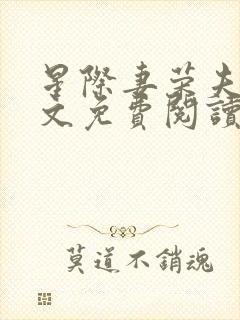 星際妻榮夫
文免費閱讀
莫道不銷魂